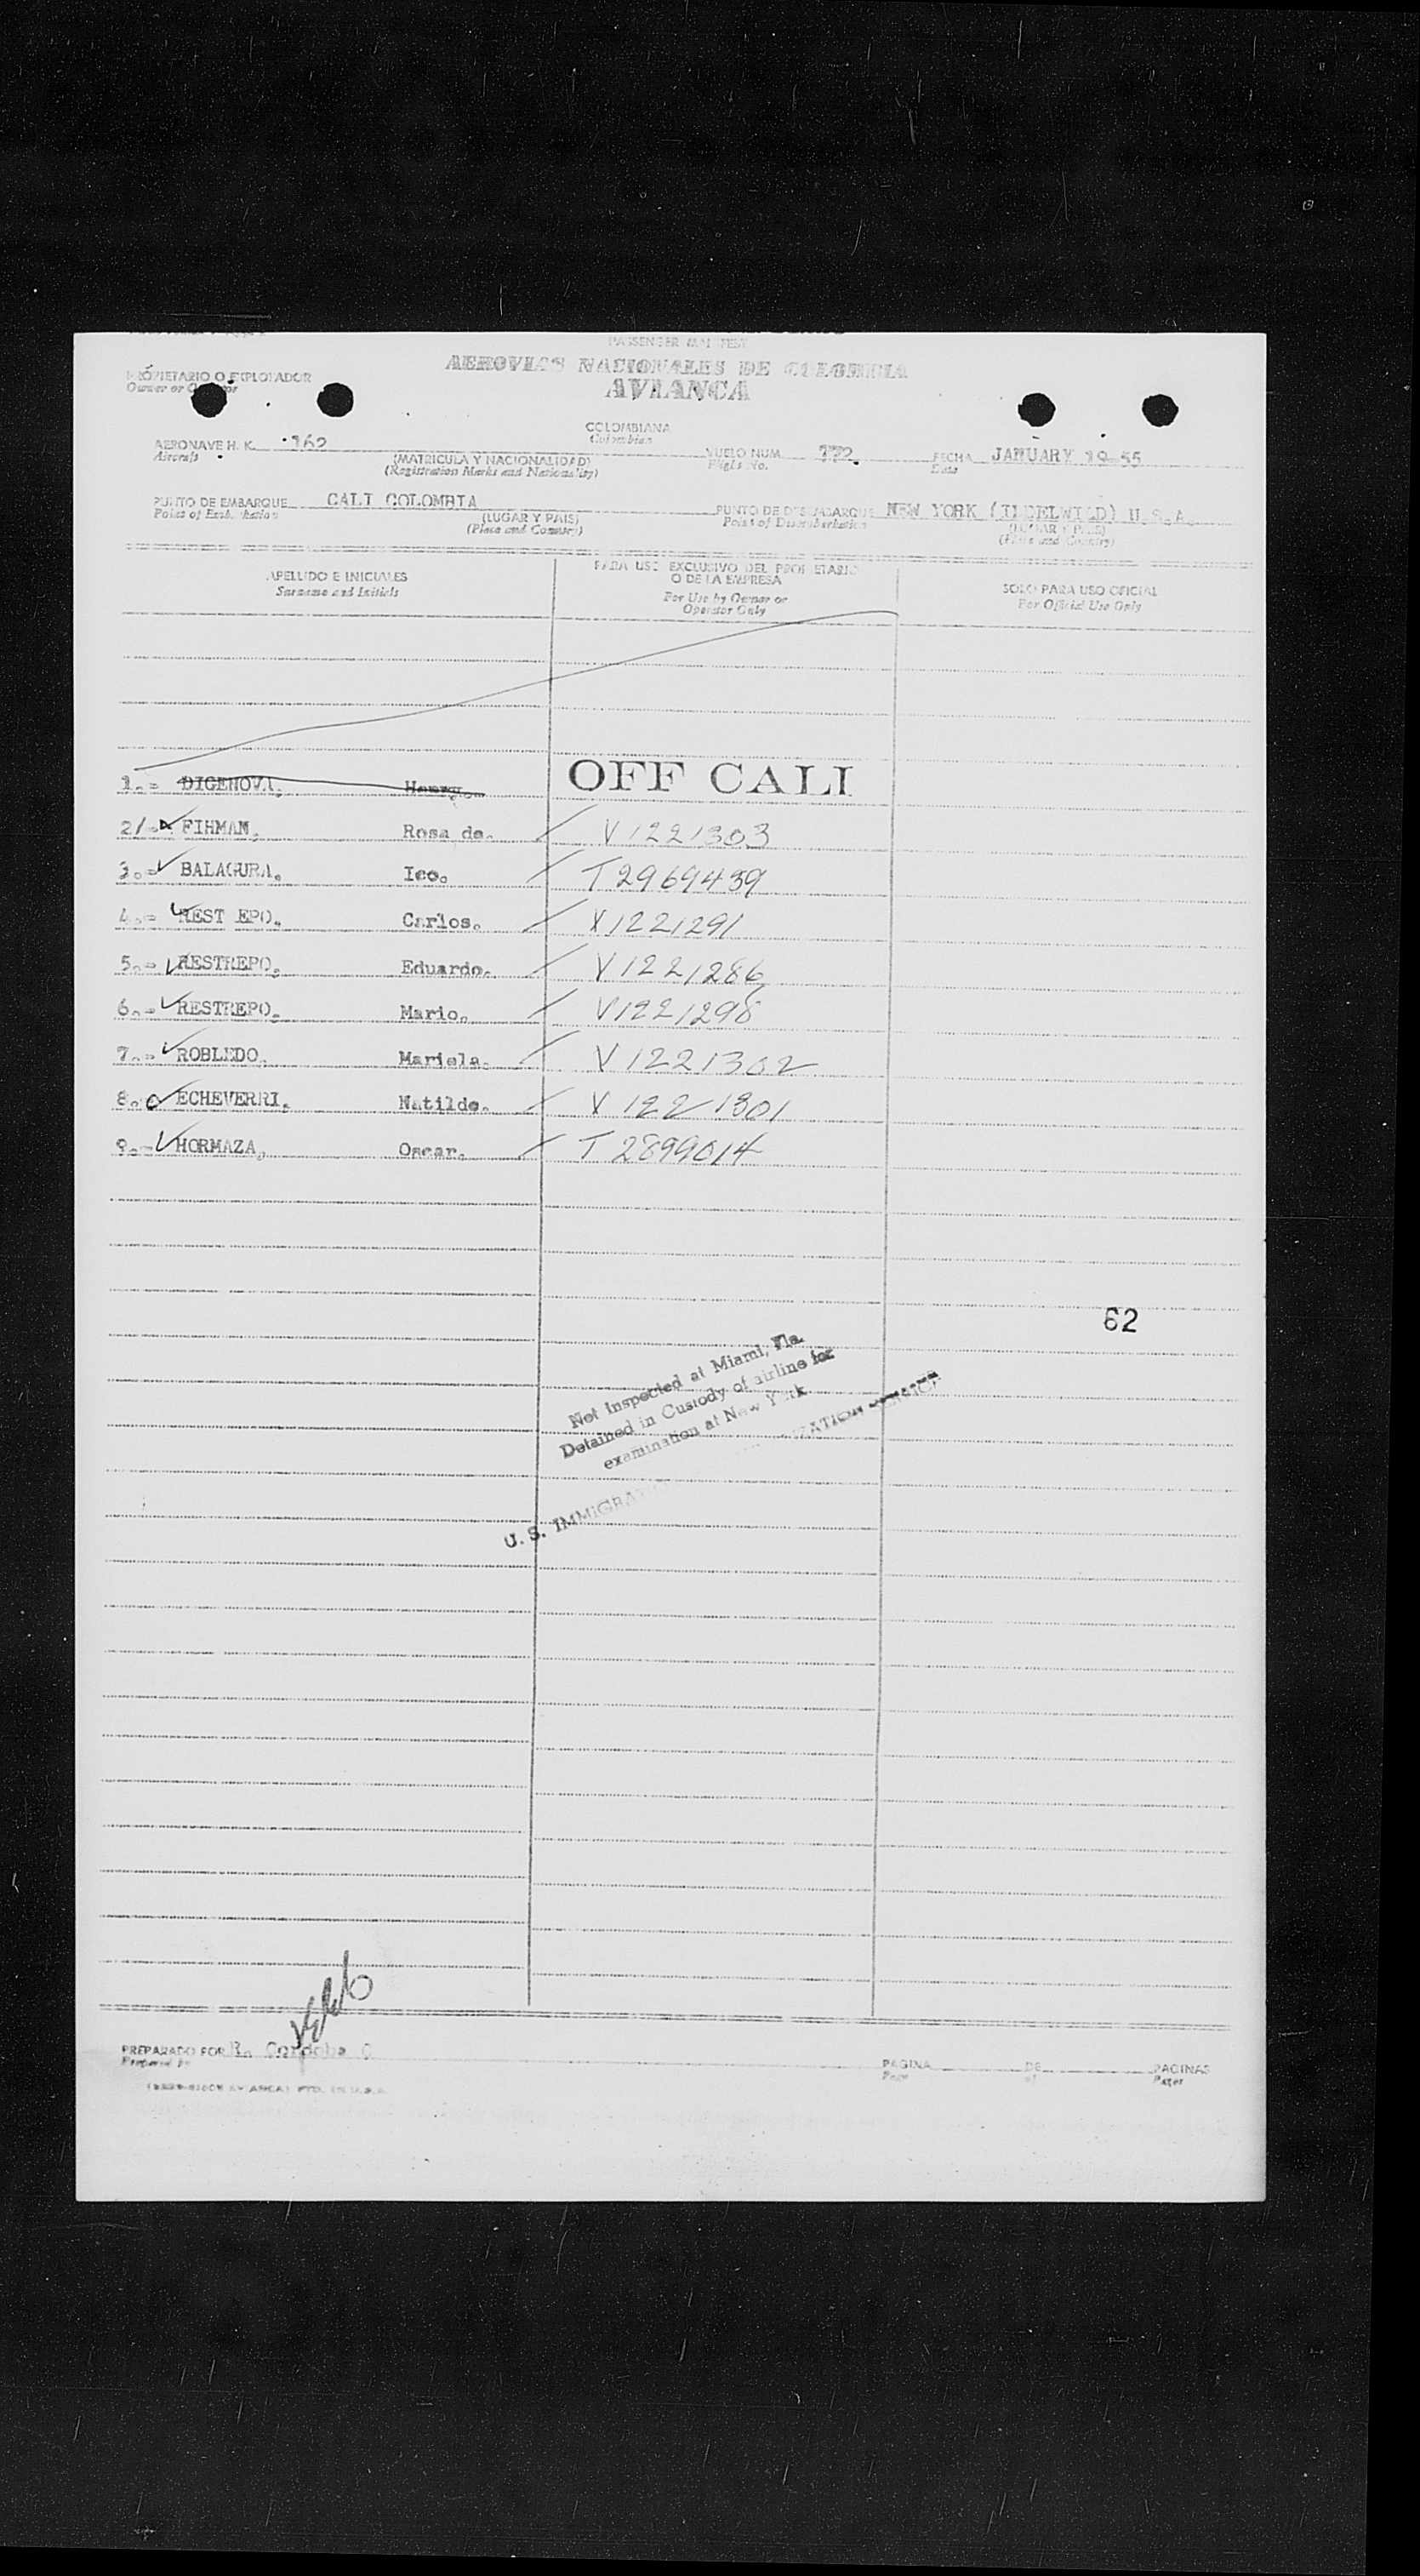 PASSENGER MANIFEST
AEROVIAS NACIONALES DE COLOMBIA
AVIANCA
PROPIETARIO O EXPLOTADOR
Owner or Operator
COLOMBIANA
Colombian
AERONAVE H. K. 162
Aircraft
(MATRICULA Y NACIONALIDAD)
(Registration Marks and Nationality)
VUELO NUM. 772.
Fligts No.
FECHA JANUARY 19 55
Date
PUNTO DE EMBARQUE CALI COLOMBIA
Point of Embarkation
(LUGAR Y PAIS)
(Place and Country)
PUNTO DE DESEMBARQUE NEW YORK (IDDELWILD) U.S.A.
Point of Disembarkation
(LUGAR Y PAIS)
(Place and Country)
APELLIDO E INICIALES
Surname and Initials
PARA USO EXCLUSIVO DEL PROPIETARIO
O DE LA EMPRESA
For Use by Owner or
Operator Only
SOLO PARA USO OFICIAL
For Official Use Only
1.= DIGENOVA. Henry. OFF CALI
2/= FIHMAN. Rosa de. V 1221303
3.= BALAGURA. Ico. T 2969439
4.= REST EPO. Carlos. V 1221291
5.= RESTREPO. Eduardo. V 1221286
6.= RESTREPO. Mario. V 1221298
7.= ROBLEDO. Mariela. V 1221302
8.= ECHEVERRI. Matilde. V 1221301
9.= HORMAZA. Oscar. T 2899014
62
Not Inspected at Miami, Fla.
Detained in Custody of airline for
examination at New York
U. S. IMMIGRA ZATION SERVICE
PREPARADO POR R. Cordoba C
Prepared by
PAGINA DE PAGINAS
Page of Pages